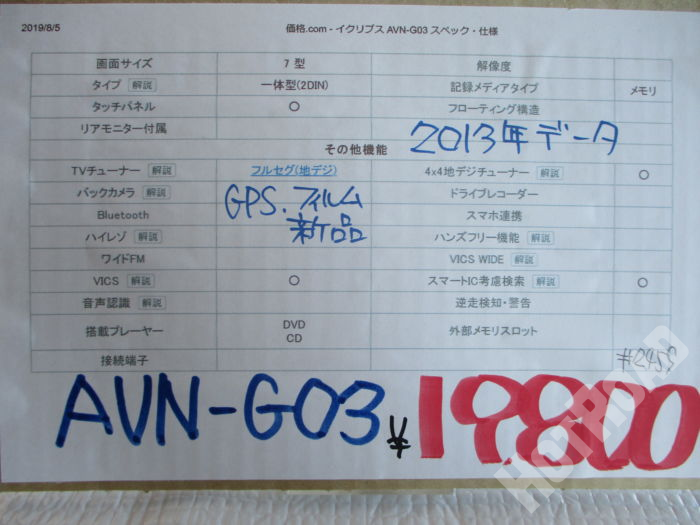 2019/8/5 価格.com - イクリプス AVN-G03 スペック・仕様
画面サイズ 7 型 解像度
タイプ 解説 一体型(2DIN) 記録メディアタイプ メモリ
タッチパネル ○ フローティング構造
リアモニター付属
2013年データ
その他機能
TVチューナー 解説 フルセグ(地デジ) 4x4地デジチューナー 解説 ○
バックカメラ 解説 ドライブレコーダー
GPS.フィルム
新品
Bluetooth スマホ連携
ハイレゾ 解説 ハンズフリー機能 解説
ワイドFM VICS WIDE 解説
VICS 解説 ○ スマートIC考慮検索 解説 ○
音声認識 解説 逆走検知・警告
搭載プレーヤー DVD 外部メモリスロット
CD
接続端子
#2459
AVN-G03 ¥19800
HOTROAD